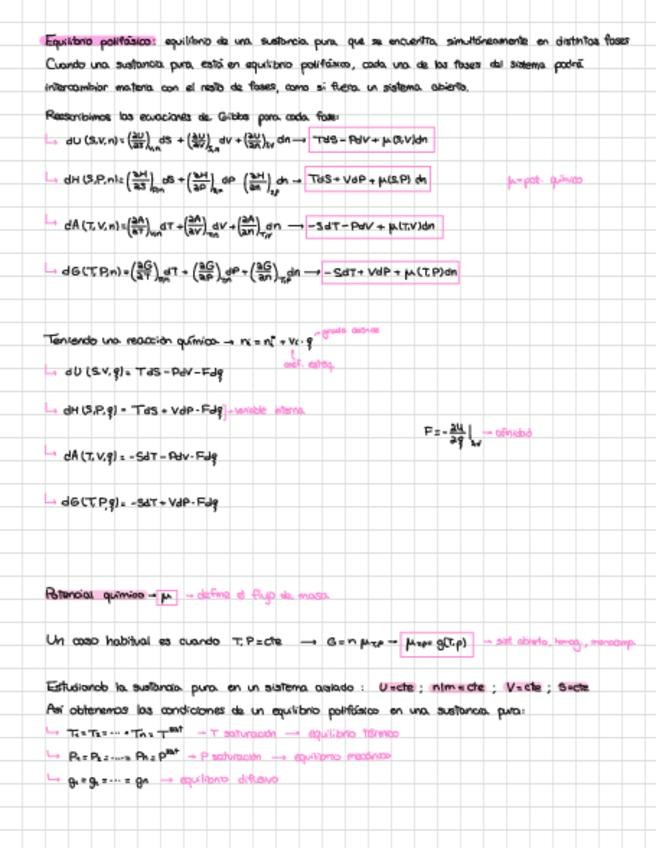 Equilibrio polifásico: equilibrio de una sustancia pura que se encuentra simultáneamente en distintas fases
Cuando una sustancia pura está en equilibrio polifásico, cada una de las fases del sistema podrá
intercambiar materia con el resto de fases, como si fuera un sistema abierto.
Reescribimos las ecuaciones de Gibbs para cada fase:
↳ dU (S,V,n) = (∂U/∂S)V,n dS + (∂U/∂V)S,n dV + (∂U/∂n)S,V dn → TdS - PdV + μ(S,V)dn
↳ dH (S,P,n) = (∂H/∂S)P,n dS + (∂H/∂P)S,n dP (∂H/∂n)S,P dn → TdS + VdP + μ(S,P) dn μ=pot. químico
↳ dA (T,V,n) = (∂A/∂T)V,n dT + (∂A/∂V)T,n dV + (∂A/∂n)T,V dn → -SdT - PdV + μ(T,V)dn
↳ dG (T,P,n) = (∂G/∂T)P,n dT + (∂G/∂P)T,n dP + (∂G/∂n)T,P dn → -SdT + VdP + μ(T,P)dn
Teniendo una reacción química → ni = ni° + νi · ξ grado avance
coef. esteq.
↳ dU (S,V,ξ) = TdS - PdV - Fdξ
↳ dH (S,P,ξ) = TdS + VdP - Fdξ → variable interna
F = - ∂U/∂ξ |S,V → afinidad
↳ dA (T,V,ξ) = -SdT - PdV - Fdξ
↳ dG (T,P,ξ) = -SdT + VdP - Fdξ
Potencial químico → μ → define el flujo de masa
Un caso habitual es cuando T,P=cte → G = n μT,P → μT,P = g(T,P) → sist. abierto, homog., monocomp.
Estudiando la sustancia pura en un sistema aislado : U=cte ; n/m = cte ; V=cte ; S=cte
Así obtenemos las condiciones de un equilibrio polifásico en una sustancia pura:
↳ T1 = T2 = ... = Tn = Tsat → T saturación → equilibrio térmico
↳ P1 = P2 = .... = Pn = Psat → P saturación → equilibrio mecánico
↳ g1 = g2 = ... = gn → equilibrio difusivo